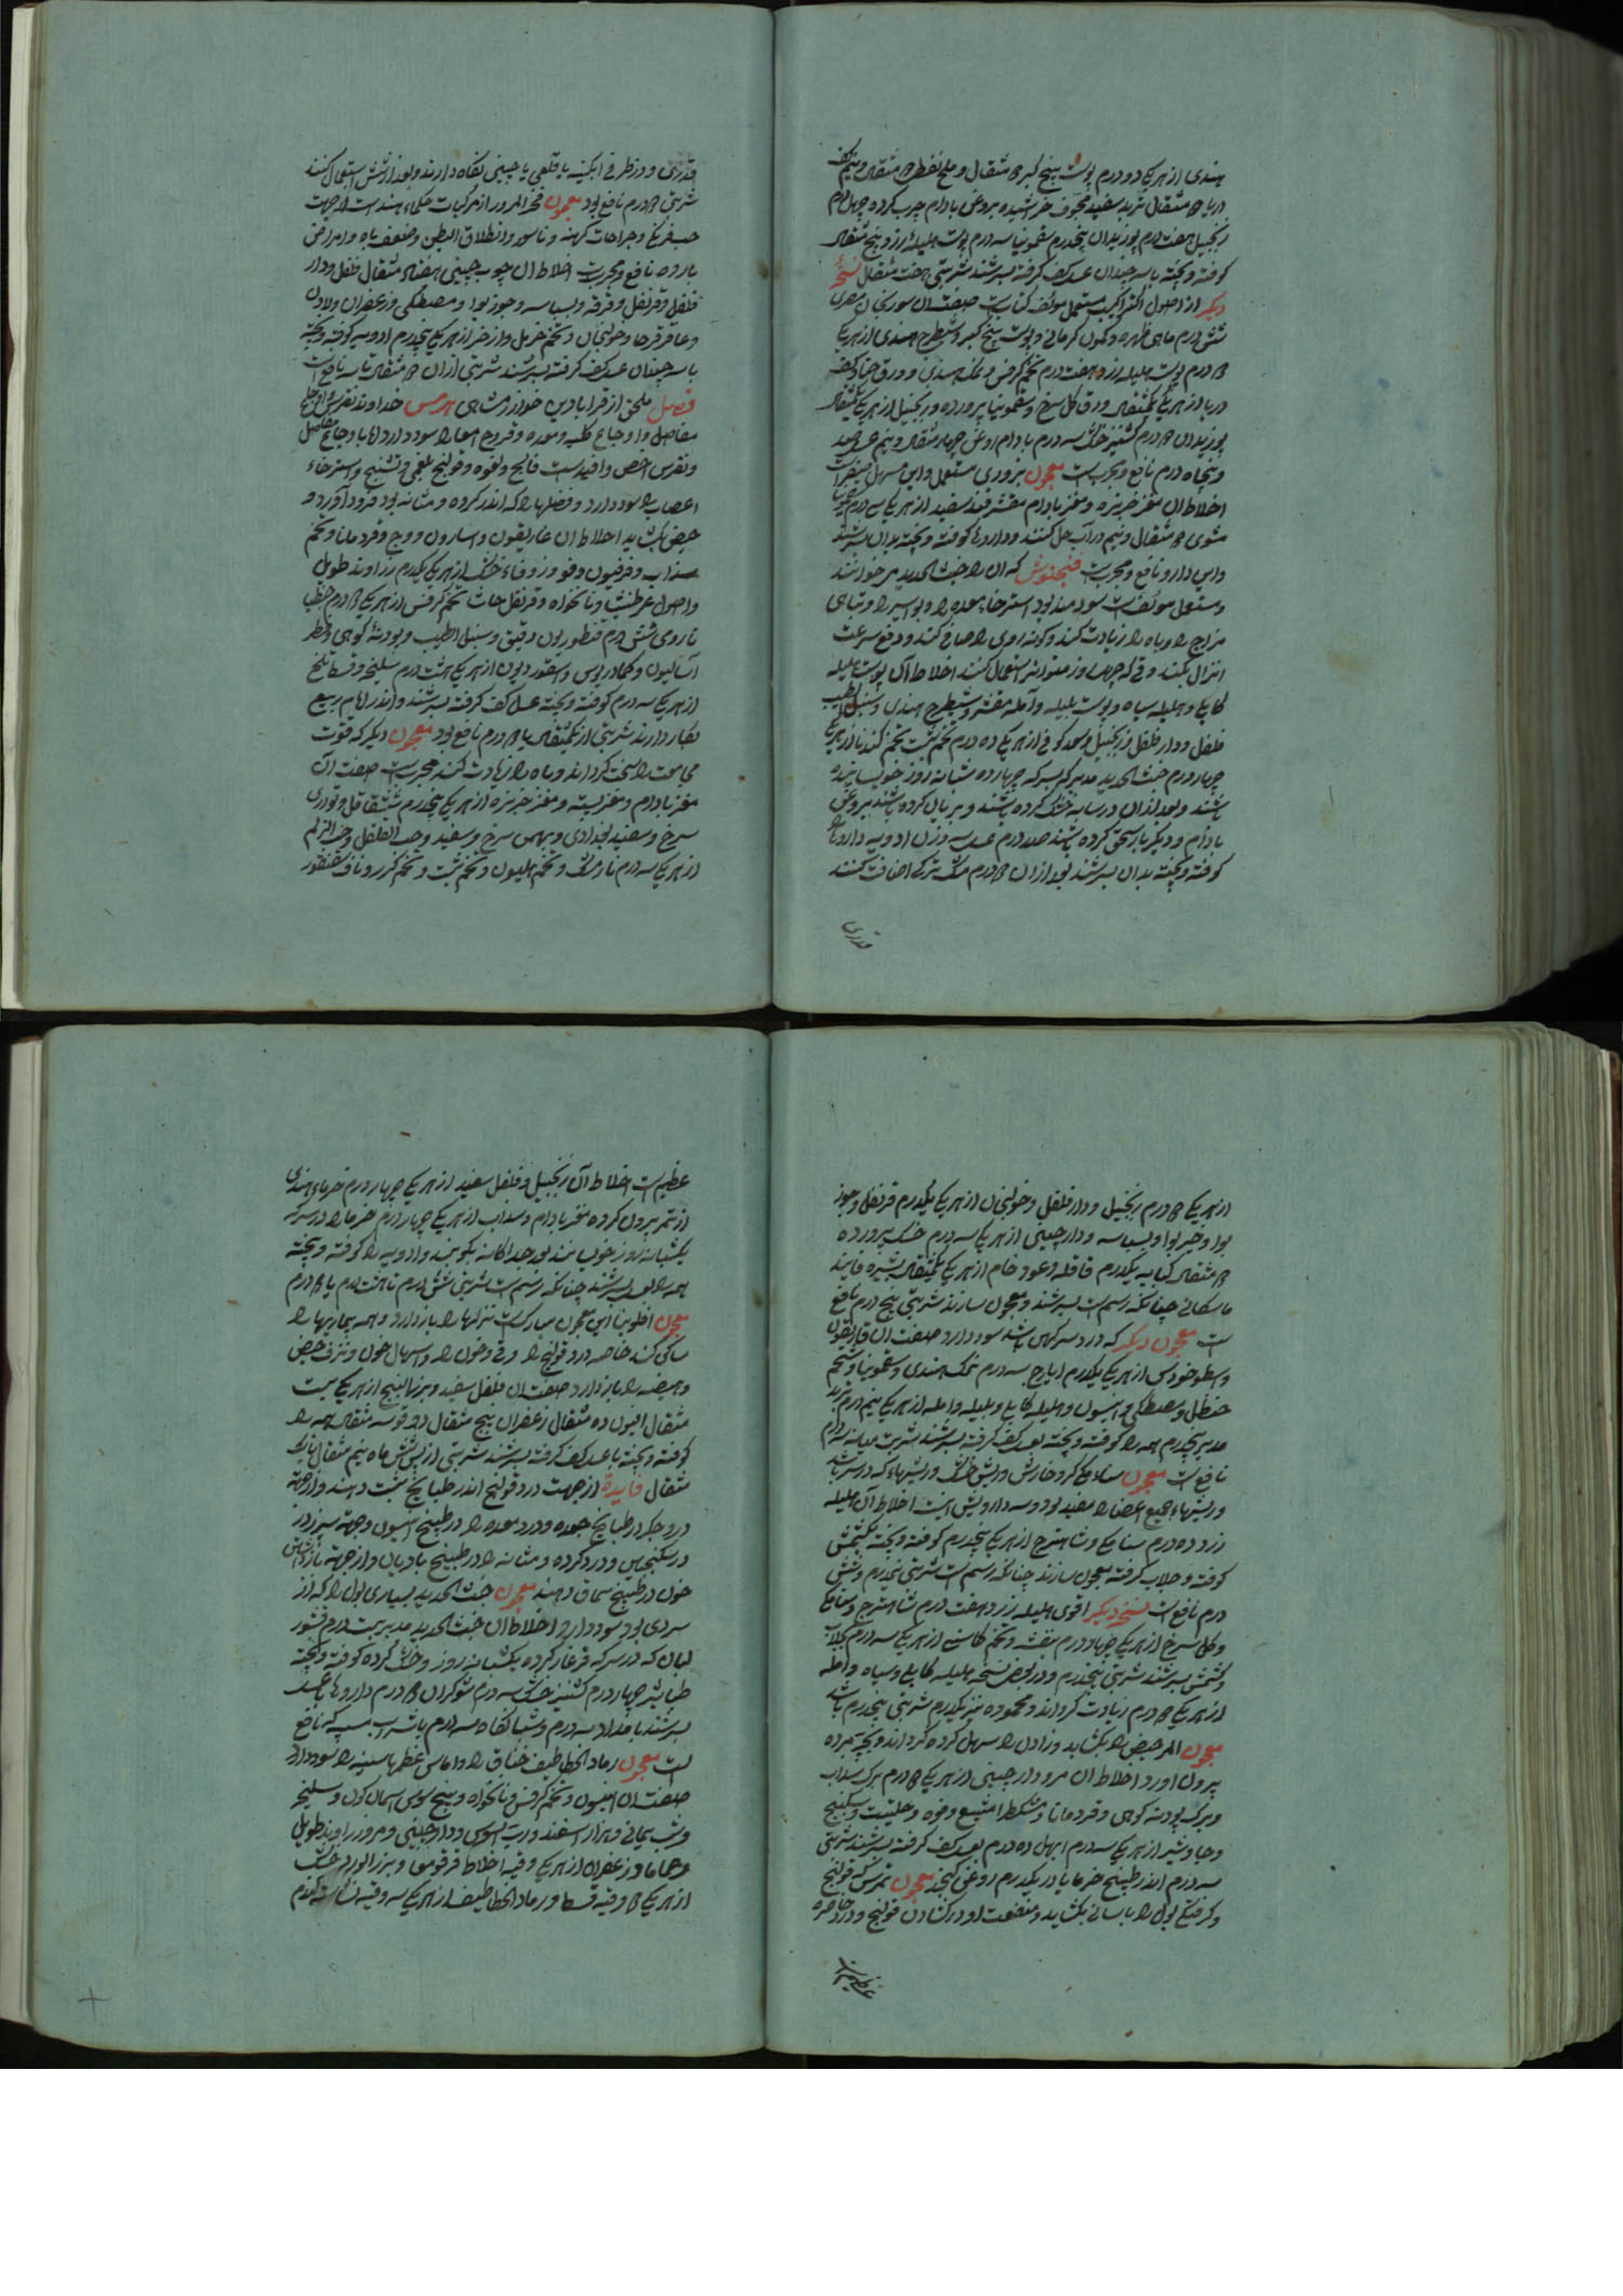 هندی از هر یک دو درم پوست بیخ کبر مثقال و ملح نفطی مثقال و نیم کف
دریا مثقال تربد سفید مجوف خراشیده بروغن بادام چرب کرده چهل درم
زنجبیل هفت درم بوزیدان پنجدرم سقمونیا سه درم پوست هلیله زرد پنج مثقال
کوفته و بیخته با سه چندان عسل کف گرفته بسرشند شربتی هفت مثقال نسخهٔ
دیگر از اصول اکثر اکیب مستعمل مولف کتابست صفت آن سورنجان مصری
شش درم ماهی زهره و کمون کرمانی و پوست بیخ کبر و شیطرج هندی از هر یک
درم پوست هلیله زرد هفت درم تخم کرفس و نمک هندی و ورق حنا و کف
دریا از هر یک یکمثقال ورق گل سرخ و سقمونیا پرورده و زنجبیل از هر یک یکمثقال
بوزیدان درم کشنیز خشک سه درم بادام روغن چهار مثقال و نیم عسل صد
و پنجاه درم نافع و مجربست معجون بزوری مستعمل و این مسهل صفراست
اخلاط آن مغز خربزه و مغز بادام مقشر قند سفید از هر یک سی درم سقمونیا
مشوی مثقال و نیم در آب حل کنند و داروها کوفته و بیخته بدان بسرشند
و این دارو نافع و مجربست فنجنوش که آن را خبث الحدید نیز خوانند
و مستعمل مولف است سودمند بود استرخاء معده را و بواسیر را و تباهی
مزاج را و باه را زیادت کند و گونه روی را صافی کند و دفع سرعت
انزال بکند وقتی که چهل روز متواتر استعمال کنند اخلاط آن پوست هلیله
کابلی و هلیله سیاه و پوست بلیله و آمله مقشر و شیطرج هندی و سنبل الطیب
فلفل و دار فلفل و زنجبیل و سعد کوفی از هر یک ده درم تخم شبت تخم گندنا از هر یک
چهار درم خبث الحدید مدبر که بسرکه چهارده شبانه روز خویسانیده
باشند و بعد از آن در سایه خشک کرده باشند و بریان کرده باشند بروغن
بادام و دیگر بار سحق کرده باشند صد درم عسل سه وزن ادویه داروها
کوفته و بیخته بدان بسرشند بعد از آن درم مشک ترکی اضافت کنند
قدری
قدری و در ظرفی آبگینه یا قلعی یا چینی نگاه دارند و بعد از شش استعمال کنند
شربتی درم نافع بود معجون فخر المرور از مرکبات حکماء هند است از جهت
حب فرنگ و جراحات کهنه و ناسور و انطلاق البطن و ضعف باه و امراض
بارده نافع و مجربست اخلاط آن چوب چینی هفتاد مثقال فلفل و دار
فلفل و قرنفل و قرفه و بسباسه و جوز بوا و مصطکی و زعفران و لادن
و عاقرقرحا و خولنجان و تخم خرمل و اذخر از هر یک پنجدرم ادویه کوفته و بیخته
با سه چندان عسل کف گرفته بسرشند شربتی از آن مثقال تا سه نافع است
فصل ملحق از قرابادین خوارزمشاهی هرمس خداوند نقرس و اوجاع
مفاصل و اوجاع کلیه و معده و قروح امعا را سود دارد اما با وجاع مفاصل
و نقرس اخص و افیدست فالج و لقوه و قولنج بلغمی و تشنج و استرخاء
اعصاب را سود دارد و فضلها را که اندر گرده و مثانه بود فرود آورد و
حیض بکشاید اخلاط آن غاریقون و اسارون و وج و قردمانا و تخم
سداب و فرفیون و فو و زوفاء خشک از هر یک یکدرم زراوند طویل
و اصول عرطنیثا و نانخواه و قرنفل حاشا تخم کرفس از هر یک درم جنطیا
نا رومی شش درم قنطوریون دقیق و سنبل الطیب و پودنهٔ کوهی و فطر
آسالیون و کمادریوس و اسقوردیون از هر یک هشت درم سلیخه و قسط تلخ
از هر یک سه درم کوفته و بیخته عسل کف گرفته بسرشند و اندر ایام ربیع
بکار دارند شربتی از یکمثقال یا درم نافع بود معجون دیگر که قوت
مجامعت را سخت گرداند و باه را زیادت کند مجربست صفت آن
مغز بادام و مغز پسته و مغز خربزه از هر یک پنجدرم شقاقل و تودری
سرخ و سفید بغدادی و بهمن سرخ و سفید و حب الفلفل و حب الزلم
از هر یک سه درم نارمشک و تخم هلیون و تخم شبت و تخم گزر و ناف سقنقور
از هر یک درم زنجبیل و دار فلفل و خولنجان از هر یک یکدرم قرنفل و جوز
بوا و خیر بوا و بسباسه و دارچینی از هر یک سه درم خسک پرورده
مثقال کبابه یکدرم قاقله و عود خام از هر یک یکمثقال بشیره فانید
ماسکانی چنانکه رسمست بسرشند و معجون سازند شربتی پنج درم نافع
ست معجون دیگر که درد سر کهن باشد سود دارد صفت آن غاریقون
و اسطوخودس از هر یک یکدرم ایارج سه درم نمک هندی و سقمونیا و شحم
حنظل و مصطکی و انیسون و هلیله کابلی و بلیله و آمله از هر یک نیم درم تربد
مدبر پنجدرم همه را کوفته و بیخته بعسل کف گرفته بسرشند شربت میانه سه درم
نافع است معجون سناء مکی گر و خارش و ریش خشک و ریشهاء که در سر باشد
و ریشهاء جمیع اعضا را مفید بود و سه دارویش اینست اخلاط آن هلیله
زرد ده درم سنا مکی و شاهترج از هر یک پنجدرم کوفته و بیخته بکشمش
کوفته و جلاب گرفته معجون سازند چنانکه رسم است شربتی پنجدرم و شش
درم نافع است نسخه دیگر اقوی هلیله زرد هفت درم شاهترج و سنا مکی
و گل سرخ از هر یک چهار درم بنفشه و تخم کاسنی از هر یک سه درم بجلاب
و کشمش بسرشند شربتی پنجدرم و در بعضی نسخه هلیله کابلی و سیاه و آمله
از هر یک درم زیادت کرداند و محموده نیز یکدرم شربتی پنجدرم باشد
معجون المر حیض را بکشاید و زادن را سهل کرده گرداند و بچهٔ مرده
بیرون آورد اخلاط آن مر و دارچینی از هر یک درم برگ سداب
و برگ پودنه کوهی و قردمانا و مشکطرامشیع و فوه و حلتیت و سکبینج
و جاوشیر از هر یک سه درم ابهل ده درم بعسل کف گرفته بسرشند شربتی
سه درم اندر طبیخ خرما یا در یکدرم روغن کنجد معجون تمری که قولنج
و گرفتگی بول را باسانی بکشاید و منفعت او در کشادن قولنج و درد خاصره
عظیمست
عظیم است اخلاط آن زنجبیل و فلفل سفید از هر یک چهار درم خرمای هندی
از تمر بیرون کرده مغز بادام و سداب از هر یک چهار درم خرما را در سرکه
یکشبانه روز خویسانند بعد جداکانه بکوبند و ادویه را کوفته و بیخته
همه را بعسل بسرشند چنانکه رسم است شربتی شش درم تا هشت درم یا درم
معجون افلونیا این معجون مبارکست نزلها را باز دارد و همه بیماریها را
ساکن کند خاصه درد قولنج را و قی و خون را و اسهال خون و نزف حیض
و هیضه را باز دارد صفت آن فلفل سفید و بزر البنج از هر یک بیست
مثقال افیون ده مثقال زعفران پنج مثقال دوقو سه مثقال همه را
کوفته و بیخته با عسل کف گرفته بسرشند شربتی از پس شش ماه نیم مثقال تا یک
مثقال فایدة از جهت درد قولنج اندر طبایخ شبت دهند و از جهة
درد جگر در طبایخ جعده و درد معده را در طبیخ انیسون و جهة سپرز در
در سکنجبین و درد گرده و مثانه را در طبیخ بادیان و از جهة بازداشتن
خون در طبیخ سماق دهند معجون خبث الحدید بسیاری بول را که از
سردی بود سود دارد اخلاط آن خبث الحدید مدبر بیست درم قشور
لبان که در سرکه فرغار کرده یکشبانه روز و خشک کرده کوفته و بیخته
طباشیر چهار درم کشنیز خشک سه درم شوکران درم داروها بعسل
بسرشند بامداد سه درم و شبانگاه سه درم با شراب سیب که نافع
است معجون رماد الخطاطیف خناق را و اماس عظیم یا سینه را سود دارد
صفت آن انیسون و تخم کرفس و نانخواه و بیخ سوسن اسمان گون و سلیخه
و شب یمانی و هزار اسفند و رب السوس و دارچینی و مر و زراوند طویل
و حماما و زعفران از هر یک وقیه اخلاط قرقومعا و بزر الورد خشک
از هر یک وقیه قسط و رماد الخطاطیف از هر یک سه وقیه نشاسته گندم